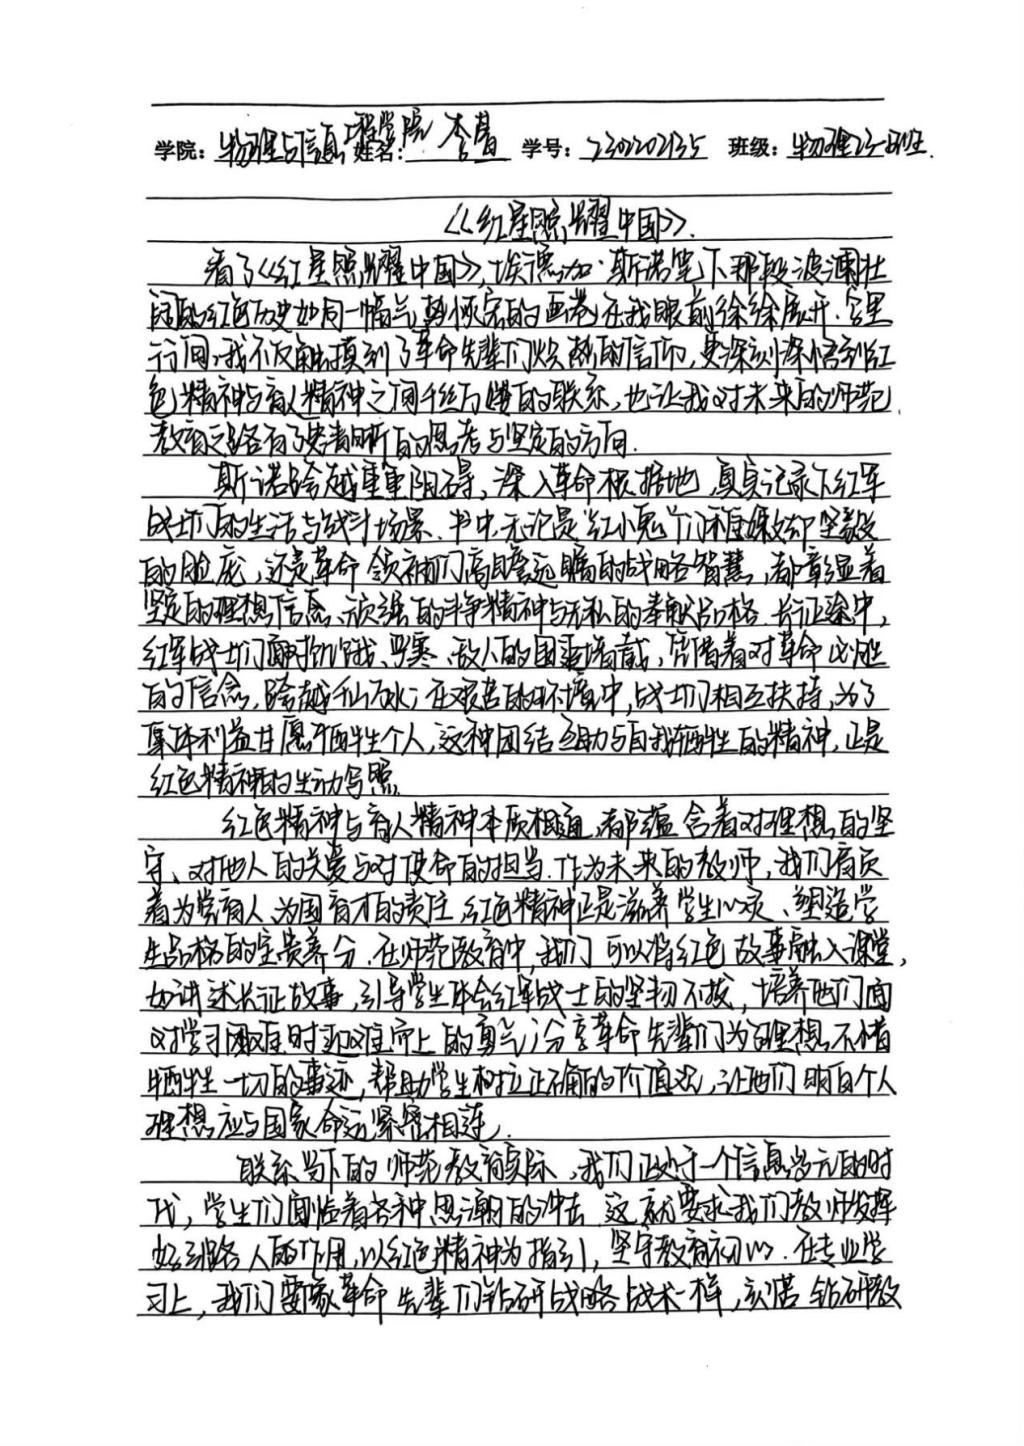 学院：物理与信息工程学院 姓名：李蕾 学号：2302202135 班级：物理23-1班.
《红星照耀中国》.
看了《红星照耀中国》，埃德加·斯诺笔下那段波澜壮
阔的红色历史如同一幅气势恢宏的画卷在我眼前徐徐展开.字里
行间,我不仅触摸到了革命先辈们炽热的信仰,更深刻深悟到红
色精神与育人精神之间千丝万缕的联系,也让我对未来的师范
教育之路有了更清晰的思考与坚定的方向.
斯诺跨越重重阻碍,深入革命根据地,真实记录下红军
战士们的生活与战斗场景.书中,无论是"红小鬼"们稚嫩却坚毅
的脸庞,还是革命领袖们高瞻远瞩的战略智慧,都彰显着
坚定的理想信念、顽强的斗争精神与无私的奉献品格.长征途中,
红军战士们面对饥饿、严寒、敌人的围追堵截,凭借着对革命必胜
的信念,跨越千山万水;在艰苦的环境中,战士们相互扶持,为了
集体利益甘愿牺牲个人,这种团结互助与自我牺牲的精神,正是
红色精神的生动写照.
红色精神与育人精神本质相通,都蕴含着对理想的坚
守、对他人的关爱与对使命的担当.作为未来的教师,我们肩负
着为党育人、为国育才的责任,红色精神正是滋养学生心灵、塑造学
生品格的宝贵养分.在师范教育中,我们可以将红色故事融入课堂,
如讲述长征故事,引导学生体会红军战士的坚韧不拔,培养他们面
对学习困难时迎难而上的勇气;分享革命先辈们为理想不惜
牺牲一切的事迹,帮助学生树立正确的价值观,让他们明白个人
理想应与国家命运紧密相连.
联系当下的师范教育实际,我们正处于一个信息多元的时
代,学生们面临着各种思潮的冲击.这就要求我们教师发挥
好引路人的作用,以红色精神为指引,坚守教育初心.在专业学
习上,我们要像革命先辈们钻研战略战术一样,刻苦钻研教